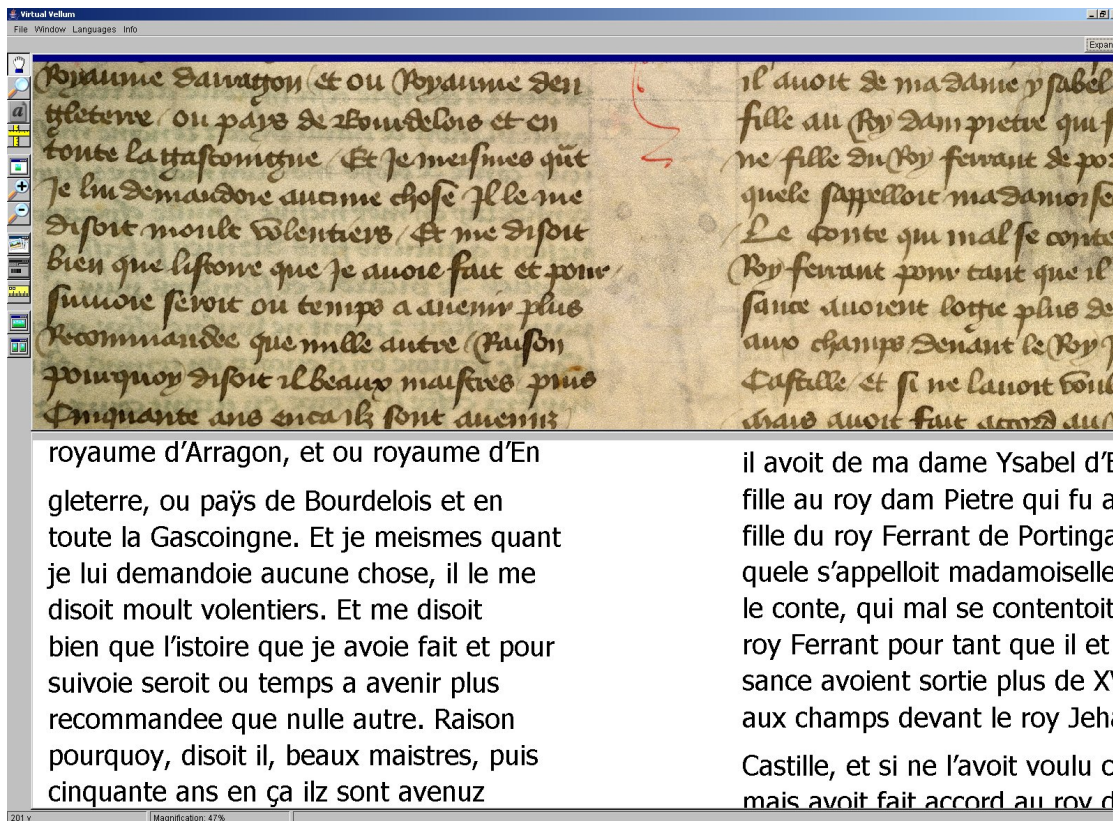 Virtual Vellum
File Window Languages Info
Expan
Royaume darragon / et ou Royaume den
gleterre / ou pays de Bourdelois et en
toute la gascoingne / Et Je meismes qũt
Je lui demandoie aucune chose Il le me
disoit moult volentiers / Et me disoit
bien que listoire que Je auoie fait et pour
suiuoie seroit ou temps a auenir plus
Recommandee que nulle autre / Raison
pourquoy disoit il beaux maistres puis
Cinquante ans enca ilz sont auenuz
il auoit de ma dame ysabel
fille au Roy dam pietre qui f
ne fille du Roy ferrant de por
quele sappelloit madamoise
Le conte qui mal se conte
Roy ferrant pour tant que il
sance auoient logie plus de
aux champs deuant le Roy J
Castille / et si ne lauoit voul
mais auoit fait accord au
royaume d'Arragon, et ou royaume d'En
gleterre, ou paÿs de Bourdelois et en
toute la Gascoingne. Et je meismes quant
je lui demandoie aucune chose, il le me
disoit moult volentiers. Et me disoit
bien que l'istoire que je avoie fait et pour
suivoie seroit ou temps a avenir plus
recommandee que nulle autre. Raison
pourquoy, disoit il, beaux maistres, puis
cinquante ans en ça ilz sont avenuz
il avoit de ma dame Ysabel d'E
fille au roy dam Pietre qui fu a
fille du roy Ferrant de Portinga
quele s'appelloit madamoiselle
le conte, qui mal se contentoit
roy Ferrant pour tant que il et
sance avoient sortie plus de XV
aux champs devant le roy Jeha
Castille, et si ne l'avoit voulu o
mais avoit fait accord au roy d
201 v
Magnification: 47%